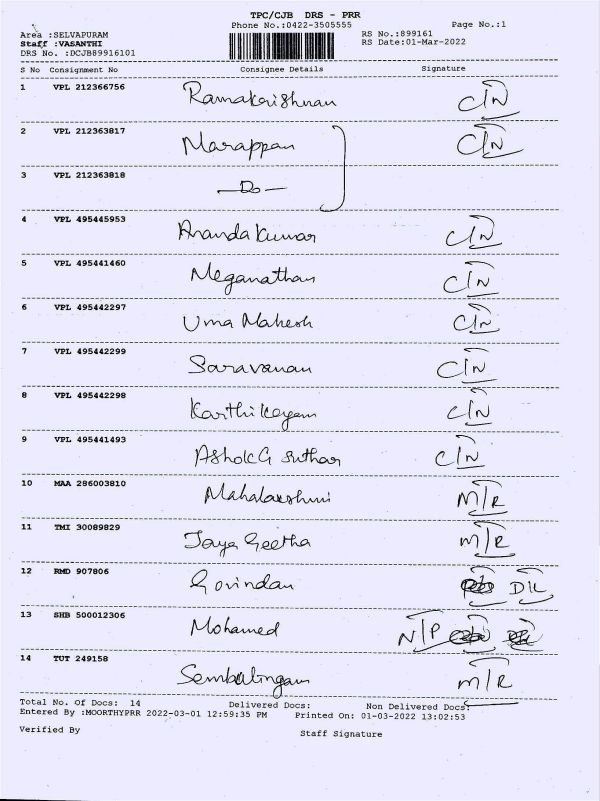 TPC/CJB DRS - PRR
Phone No.:0422-3505555 Page No.:1
Area :SELVAPURAM RS No.:899161
Staff :VASANTHI RS Date:01-Mar-2022
DRS No. :DCJB89916101
S No Consignment No Consignee Details Signature
1 VPL 212366756 Ramakrishnan C/N
2 VPL 212363817 Marappan C/N
3 VPL 212363818 —Do—
4 VPL 495445953 Ananda Kumar C/N
5 VPL 495441460 Meganathan C/N
6 VPL 495442297 Uma Mahesh C/N
7 VPL 495442299 Saravanan C/N
8 VPL 495442298 Karthikeyan C/N
9 VPL 495441493 Ashok G Suthar C/N
10 MAA 286003810 Mahalakshmi M/R
11 TMI 30089829 Jaya Geetha M/R
12 RMD 907806 Govindan D/L
13 SHB 500012306 Mohamed N/P
14 TUT 249158 Sembalingam M/R
Total No. Of Docs: 14 Delivered Docs: Non Delivered Docs:
Entered By :MOORTHYPRR 2022-03-01 12:59:35 PM Printed On: 01-03-2022 13:02:53
Verified By Staff Signature